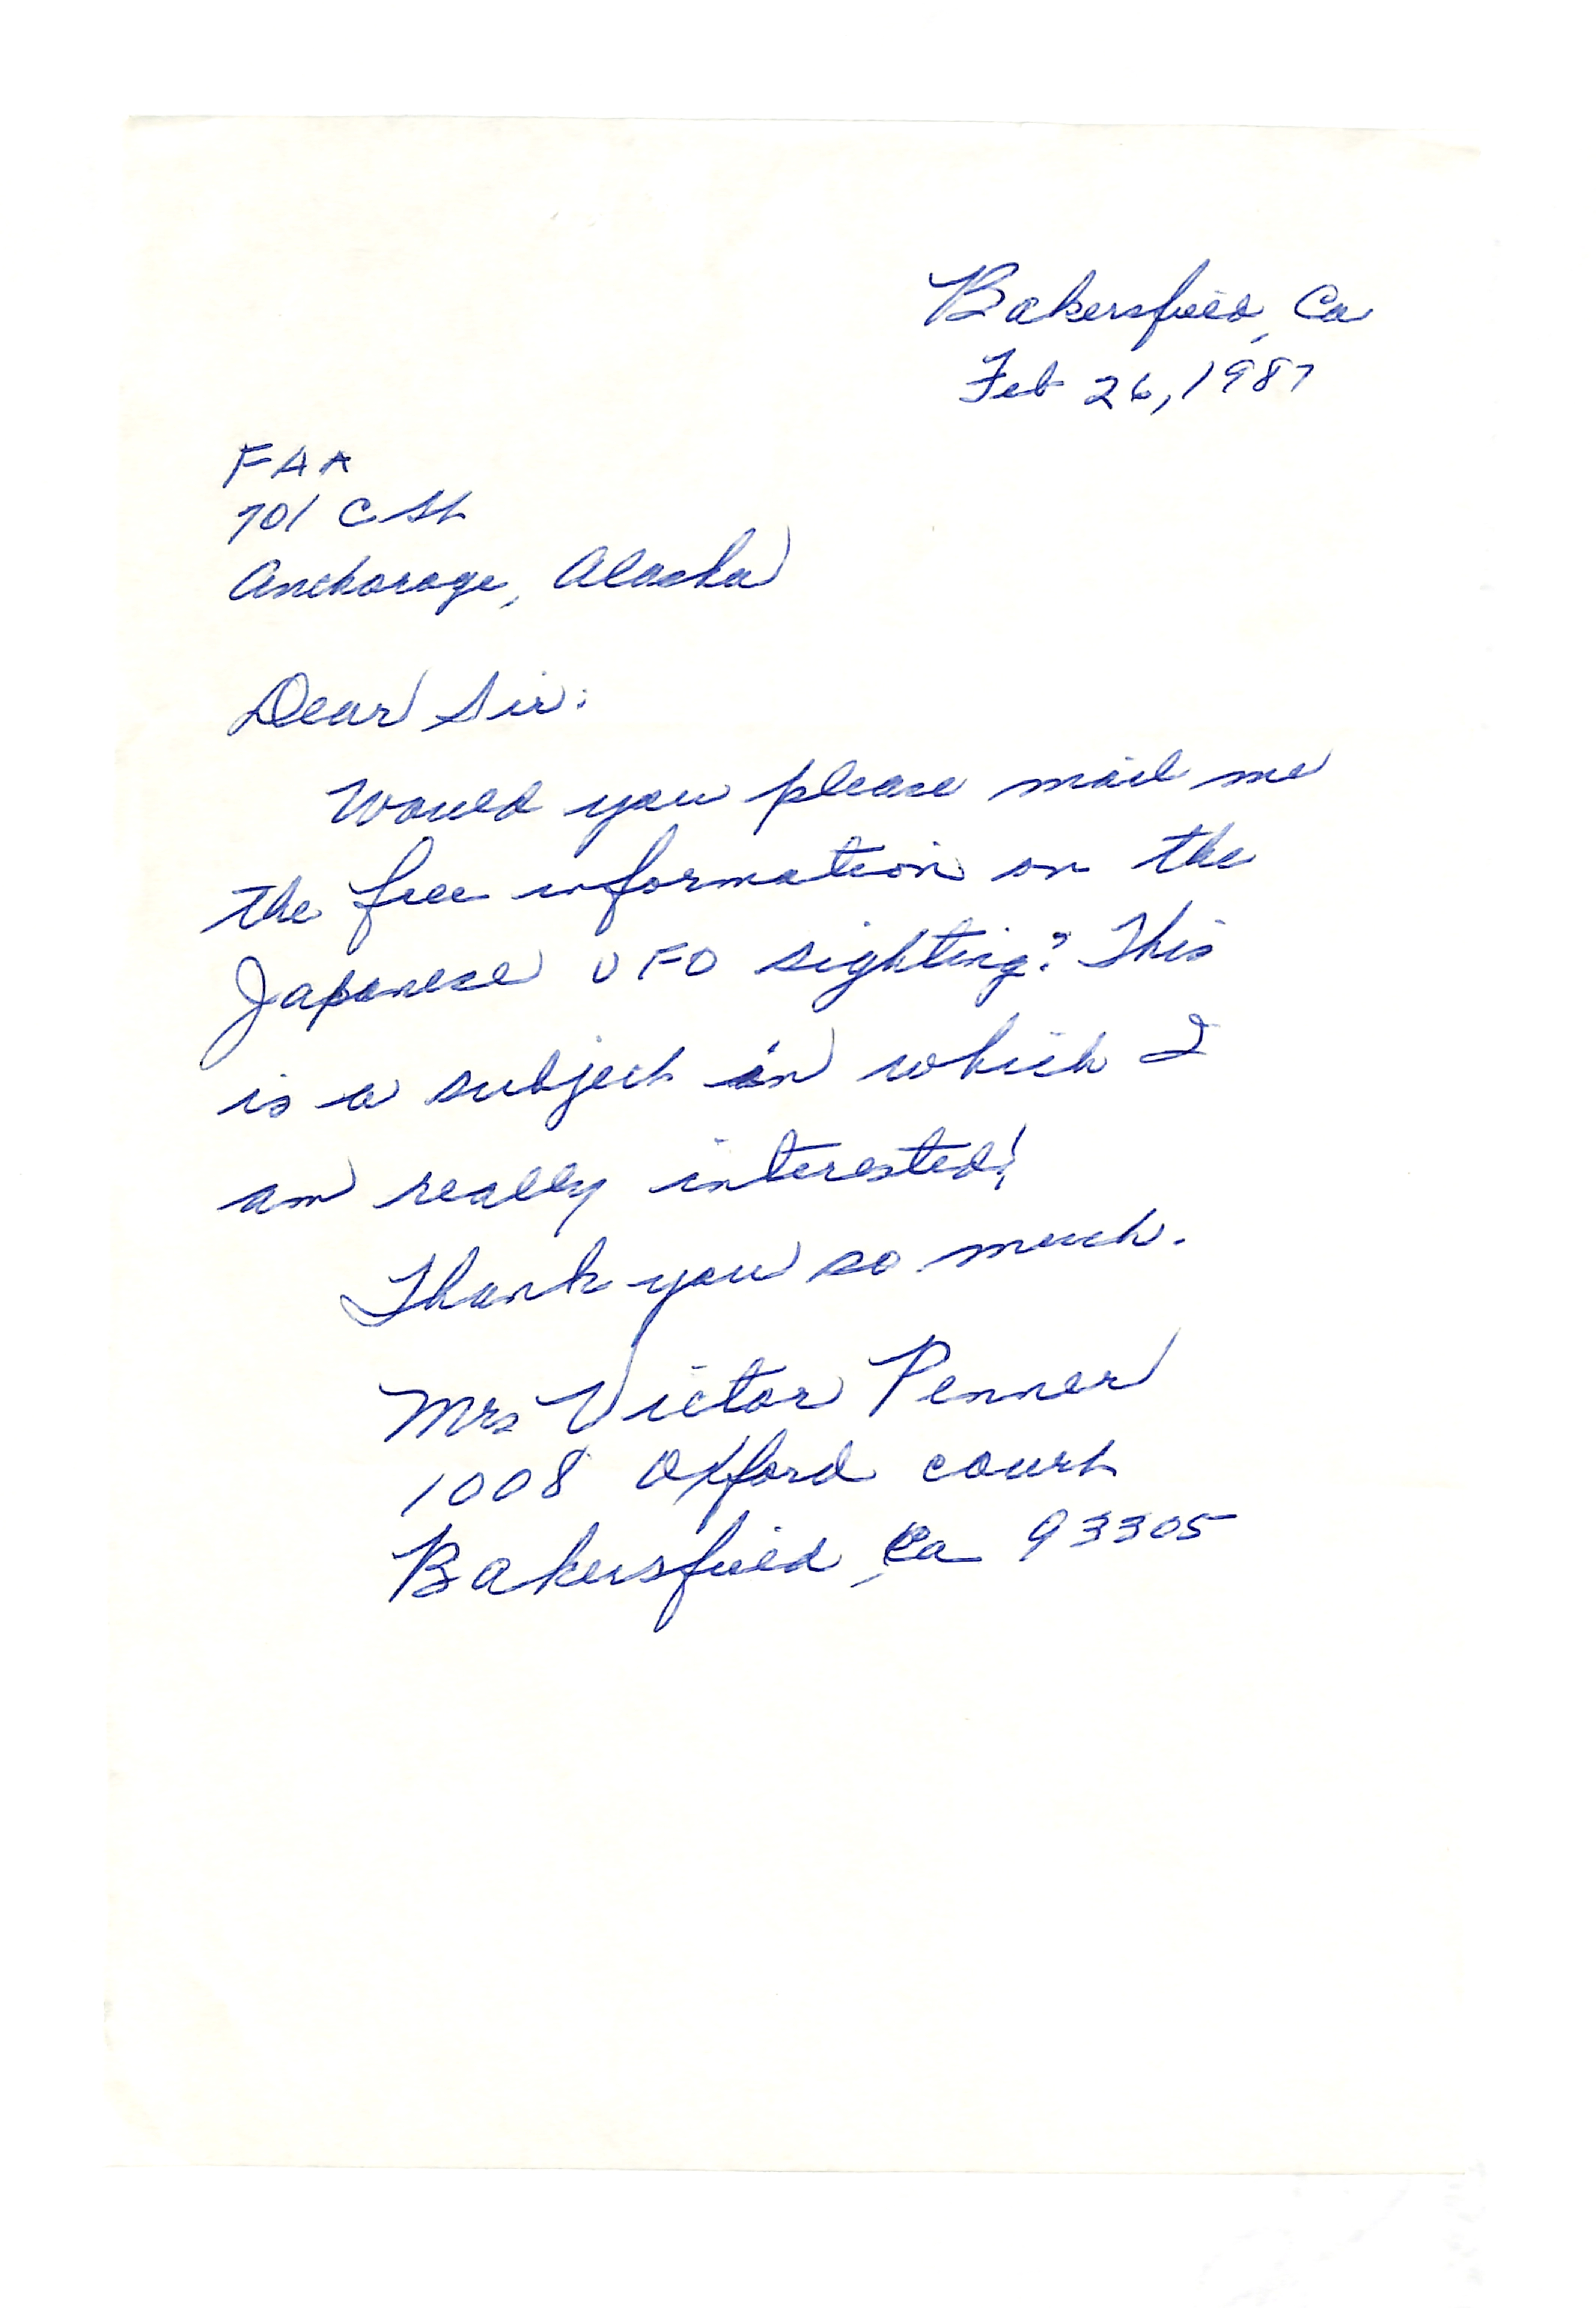 Bakersfield, Ca
Feb 26, 1987
FAA
701 C St
Anchorage, Alaska
Dear Sir:
Would you please mail me
the free information on the
Japanese UFO sighting? This
is a subject in which I
am really interested!
Thank you so much.
Mrs Victor Penner
1008 Oxford Court
Bakersfield, Ca 93305